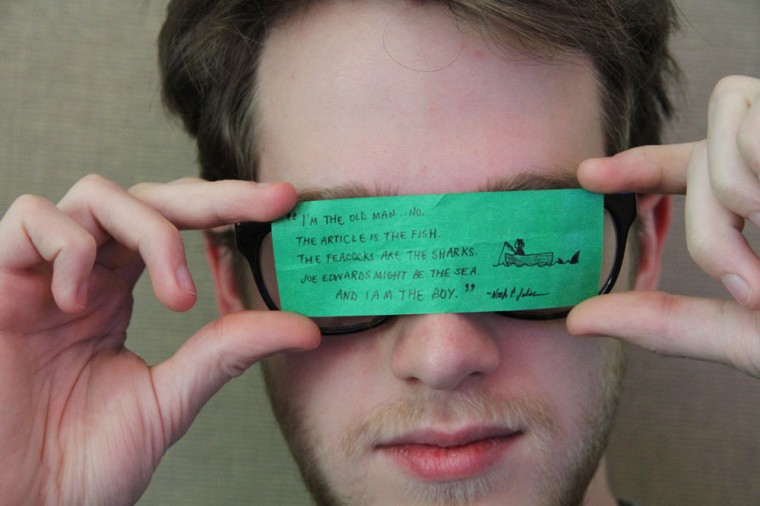 "I'M THE OLD MAN...NO.
THE ARTICLE IS THE FISH.
THE PEACOCKS ARE THE SHARKS.
JOE EDWARDS MIGHT BE THE SEA.
AND I AM THE BOY."